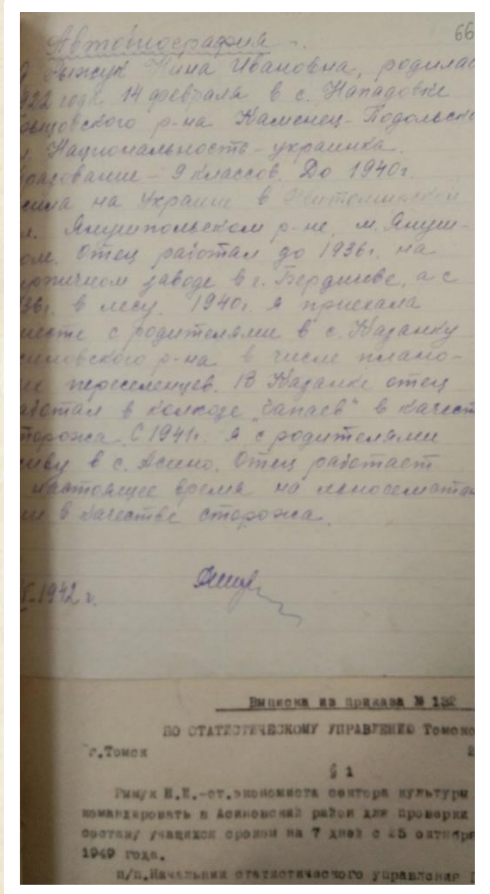 66
Автобиография.
Рыжук Нина Ивановна, родилас
922 года 14 февраля в с. Нападовке
р-на Каменец-Подольско
Национальность - украинка.
разование - 9 классов. До 1940г.
жила на Украине в Житомирской
л. Янушпольском р-не, м. Януш-
ом. Отец работал до 1936г. на
ирпичном заводе в г. Бердичеве, а с
36г. в лесу. 1940г. я приехала
месте с родителями в с. Казанку
синовского р-на в числе плано-
переселенцев. В Казанке отец
аботал в колхозе "Чапаев" в качест
торожа. С 1941г. я с родителями
живу в с. Асино. Отец работает
настоящее время на
ии в качестве сторожа.
1942 г.
Выписка из приказа № 132
ПО СТАТИСТИЧЕСКОМУ УПРАВЛЕНИЮ Томско
г.Томск
§ 1
Рыжук Н.И.-ст.экономиста сектора культуры
командировать в Асиновский район для проверки
составу учащихся сроком на 7 дней с 25 октября
1949 года.
п/п.Начальник статистического управления